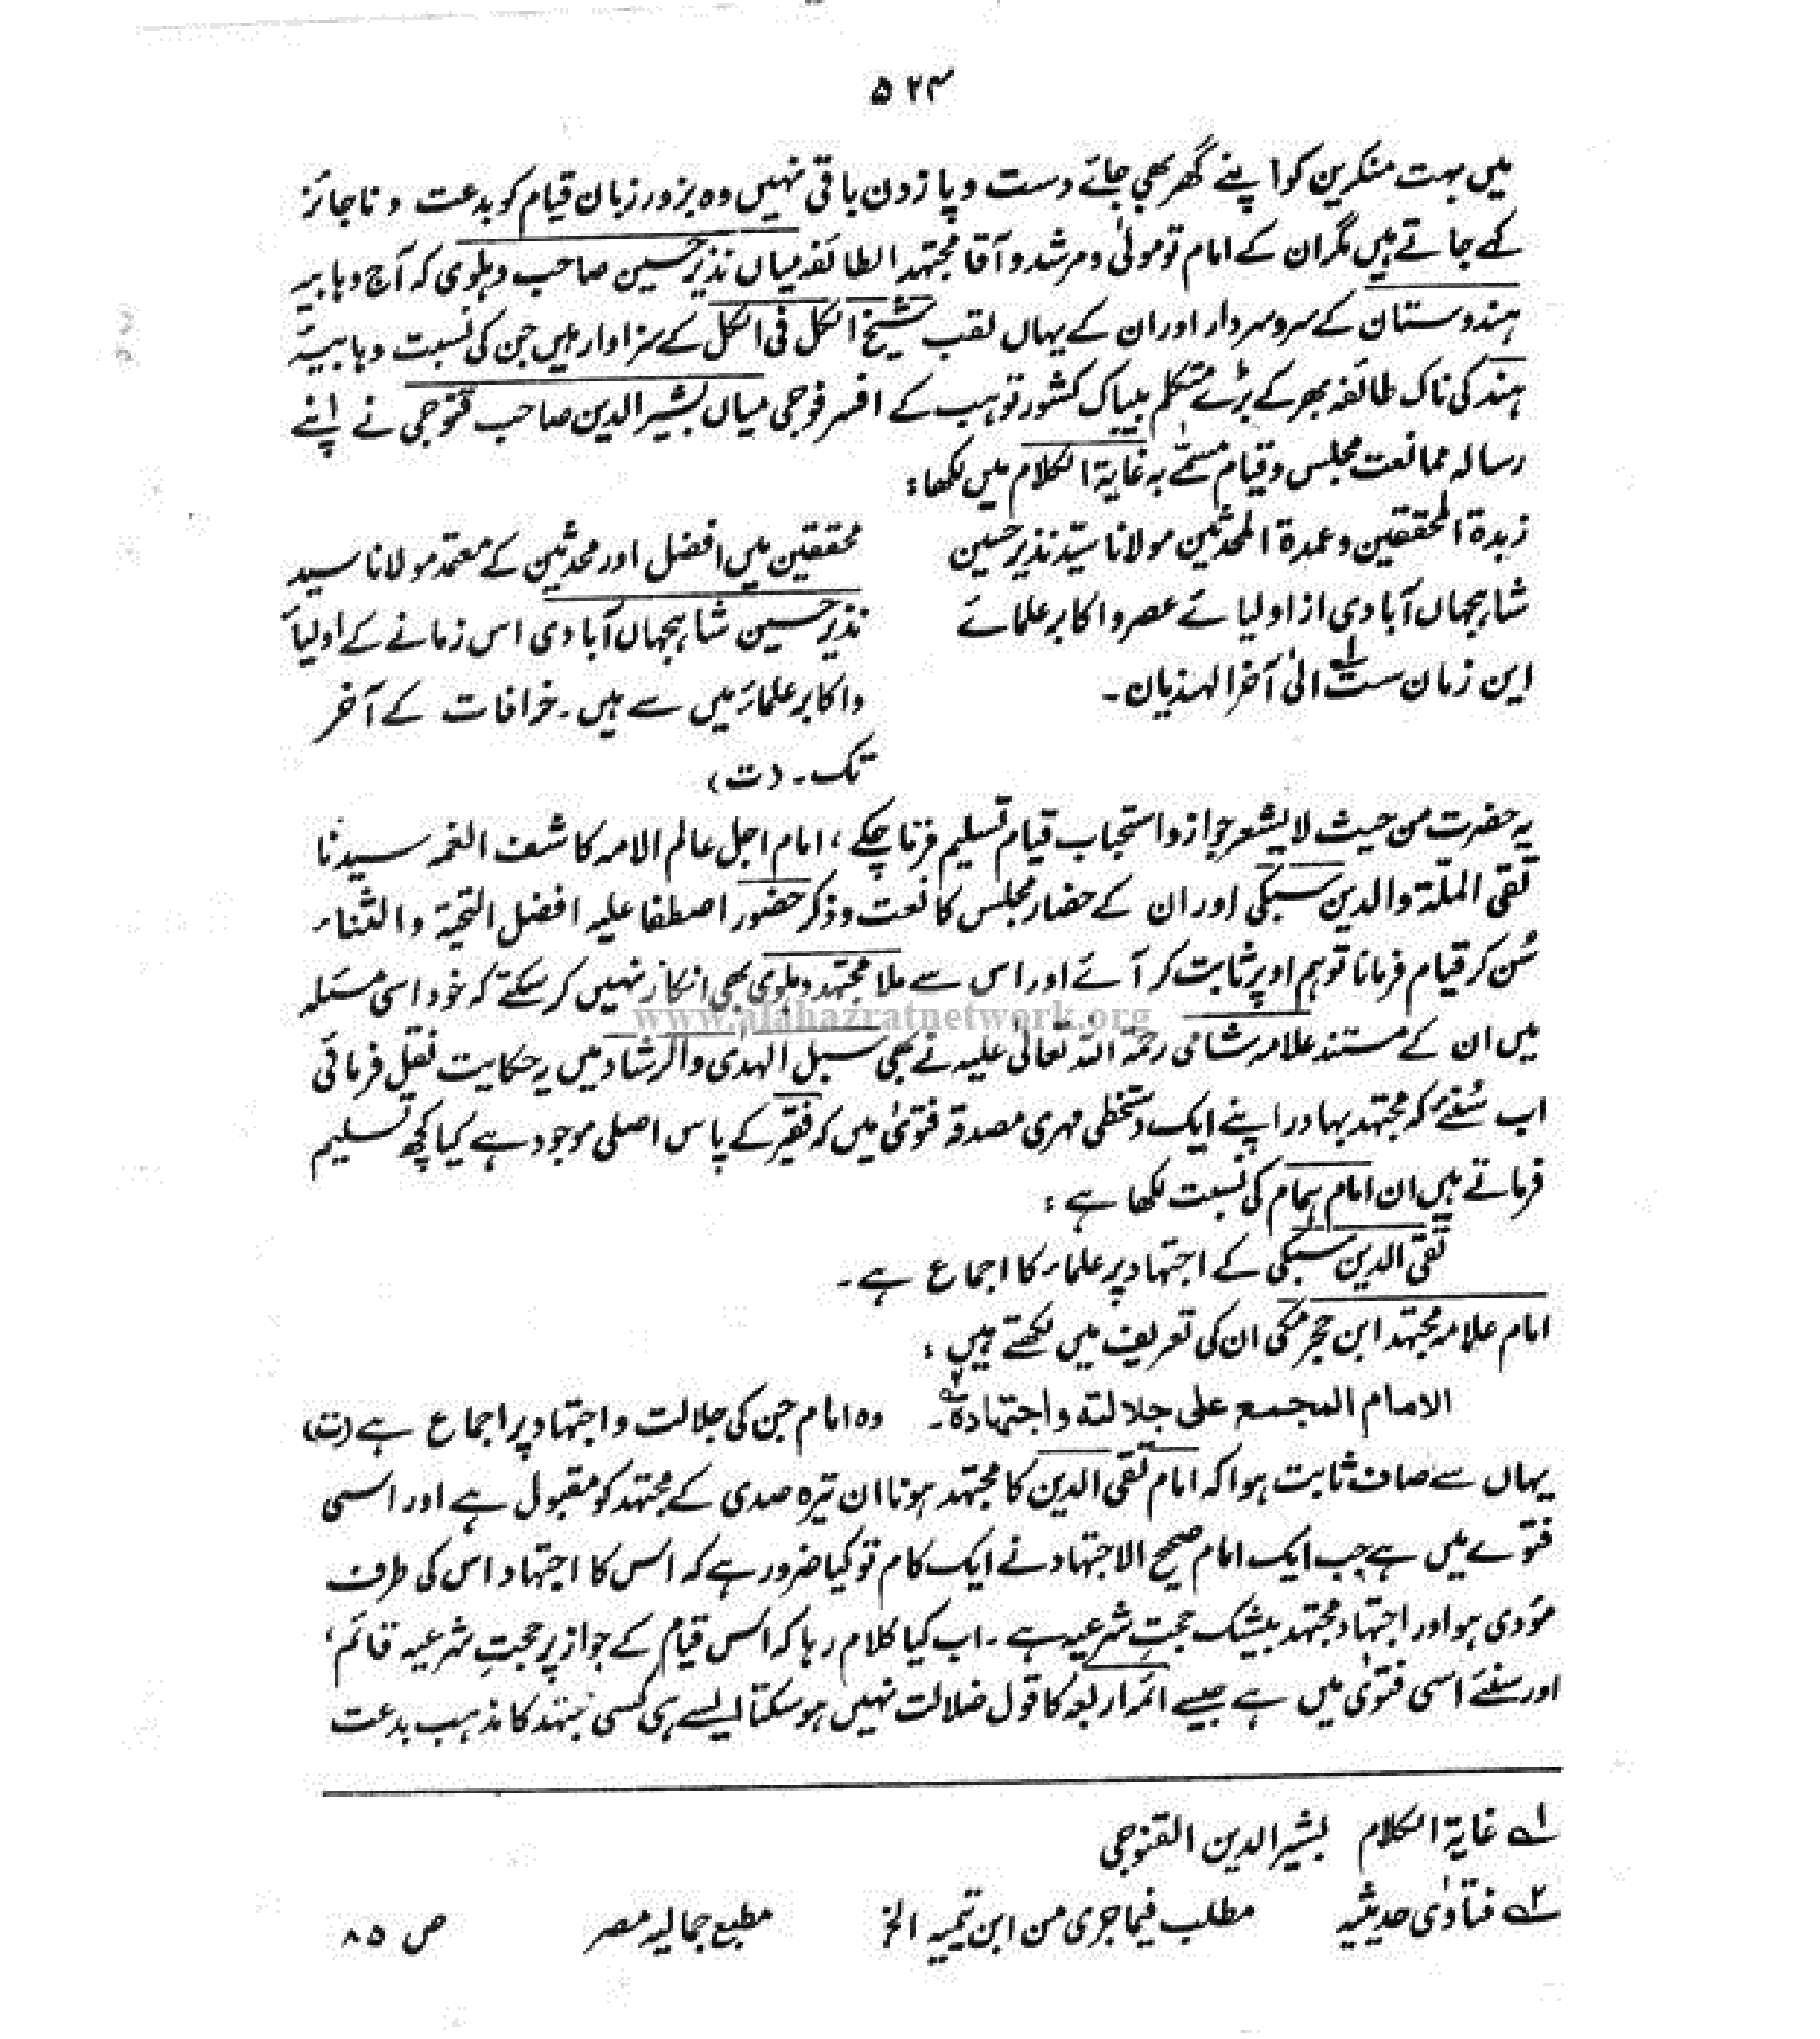 ۵۲۴
میں بہت منکرین کو اپنے گھر بھی جائے دست و پا زدن باقی نہیں وہ بزور زبان قیام کو بدعت و ناجائز
کہے جاتے ہیں مگر ان کے امام تو مولٰی و مرشد و آقا مجتہد الطائفہ میاں نذیر حسین صاحب دہلوی کہ آج وہابیہ
ہندوستان کے سرو سردار اور ان کے یہاں لقب شیخ الکل فی الکل کے سزاوار ہیں جن کی نسبت وہابیہ
ہند کی ناک طائفہ بھر کے بڑے متکلم بیباک کشور توہب کے افسر فوجی میاں بشیر الدین صاحب قنوجی نے اپنے
رسالہ ممانعت مجلس و قیام مسمّٰی بہ غایۃ الکلام میں لکھا:
زبدۃ المحققین و عمدۃ المحدثین مولانا سیّد نذیر حسین
شاہجہاں آبادی از اولیائے عصر و اکابر علمائے
این زمان ست۱؎ الٰی آخر الہذیان۔
محققین میں افضل اور محدثین کے معتمد مولانا سید
نذیر حسین شاہجہاں آبادی اس زمانے کے اولیاء
و اکابر علماء میں سے ہیں۔ خرافات کے آخر
تک۔ (ت)
یہ حضرت من حیث لا یشعر جواز و استحباب قیام تسلیم فرما چکے، امام اجل عالم الامہ کاشف الغمہ سیدنا
تقی الملّۃ والدین سبکی اور ان کے حضار مجلس کا نعت و ذکر حضور اصطفا علیہ افضل التحیۃ والثناء
سُن کر قیام فرمانا تو ہم اوپر ثابت کر آئے اور اس سے ملا مجتہد دہلوی بھی انکار نہیں کر سکتے کہ خود اسی مسئلہ
www.alahazratnetwork.org
میں ان کے مستند علامہ شامی رحمۃ اللہ تعالٰی علیہ نے بھی سبل الہدٰی والرشاد میں یہ حکایت نقل فرمائی
اب سُنئے کہ مجتہد بہادر اپنے ایک دستخطی مہری مصدقہ فتوٰی میں کہ فقیر کے پاس اصلی موجود ہے کیا کچھ تسلیم
فرماتے ہیں ان امام ہمام کی نسبت لکھا ہے:
تقی الدین سبکی کے اجتہاد پر علماء کا اجماع ہے۔
امام علامہ مجتہد ابن حجر مکی ان کی تعریف میں لکھتے ہیں:
الامام المجمع علی جلالتہ و اجتہادہ۲؎۔ وہ امام جن کی جلالت و اجتہاد پر اجماع ہے (ت)
یہاں سے صاف ثابت ہوا کہ امام تقی الدین کا مجتہد ہونا ان تیرہ صدی کے مجتہد کو مقبول ہے اور اسی
فتوے میں ہے جب ایک امام صحیح الاجتہاد نے ایک کام تو کیا ضرور ہے کہ اس کا اجتہاد اس کی طرف
مؤدی ہو اور اجتہاد مجتہد بیشک حجتِ شرعیہ ہے۔ اب کیا کلام رہا کہ اس قیام کے جواز پر حجتِ شرعیہ قائم،
اور سنئے اسی فتوٰی میں ہے جیسے ائمہ اربعہ کا قول ضلالت نہیں ہو سکتا ایسے ہی کسی مجتہد کا مذہب بدعت
۱؎ غایۃ الکلام بشیر الدین القنوجی
۲؎ فتاوٰی حدیثیہ مطلب فیما جرٰی من ابن تیمیہ الخ مطبع جمالیہ مصر ص ۸۵